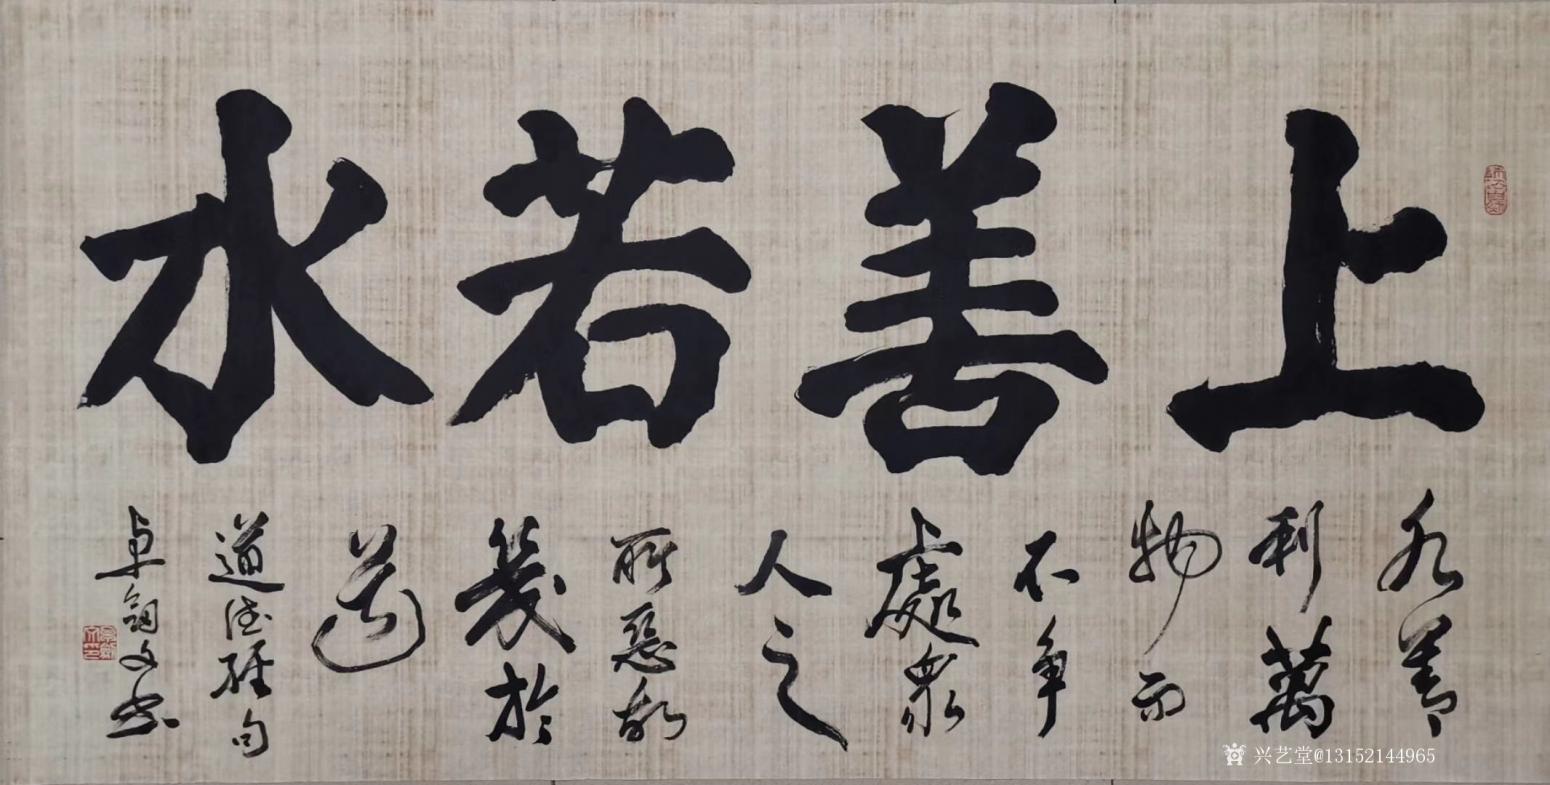 上善若水
水善
利萬
物而
不争
處衆
人之
所惡故
幾於
道
道德經句
卓文书
兴艺堂@13152144965